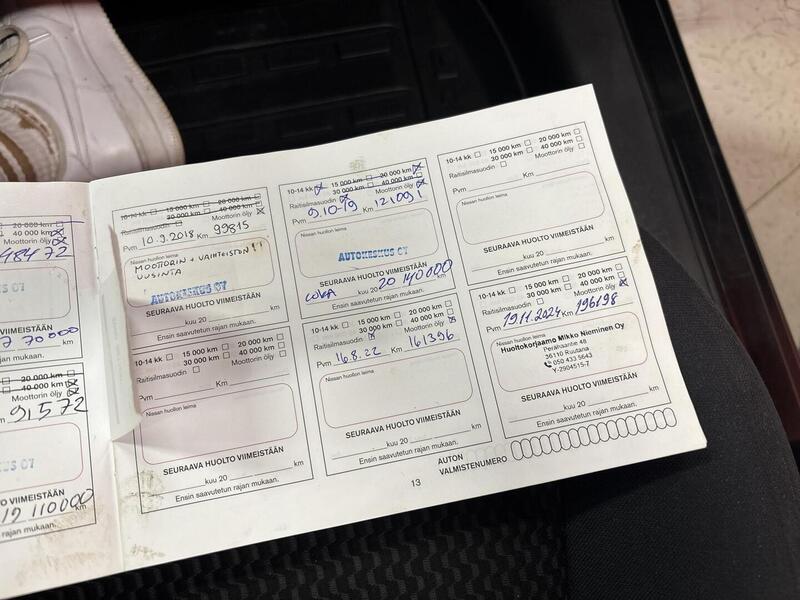 20 000 km
40 000 km
Moottorin öljy
48472
70000
20 000 km
40 000 km
Moottorin öljy
91572
VIIMEISTÄÄN
110000
km
rajan mukaan.
10-14 kk 15 000 km 20 000 km
30 000 km 40 000 km
Raitisilmasuodin Moottorin öljy
Pvm 10.9.2018 Km 99815
Nissan huollon leima
MOOTTORIN + VAIHTEISTON
UUSINTA
AUTOKESKUS OY
SEURAAVA HUOLTO VIIMEISTÄÄN
kuu 20 km
Ensin saavutetun rajan mukaan.
10-14 kk 15 000 km 20 000 km
30 000 km 40 000 km
Raitisilmasuodin Moottorin öljy
Pvm Km
Nissan huollon leima
SEURAAVA HUOLTO VIIMEISTÄÄN
kuu 20 km
Ensin saavutetun rajan mukaan.
10-14 kk 15 000 km 20 000 km
30 000 km 40 000 km
Raitisilmasuodin Moottorin öljy
Pvm 9.10-19 Km 121091
Nissan huollon leima
AUTOKESKUS OY
SEURAAVA HUOLTO VIIMEISTÄÄN
LOKA kuu 20 20 140000 km
Ensin saavutetun rajan mukaan.
10-14 kk 15 000 km 20 000 km
30 000 km 40 000 km
Raitisilmasuodin Moottorin öljy
Pvm 16.8.22 Km 161396
Nissan huollon leima
SEURAAVA HUOLTO VIIMEISTÄÄN
kuu 20 km
Ensin saavutetun rajan mukaan.
10-14 kk 15 000 km 20 000 km
30 000 km 40 000 km
Raitisilmasuodin Moottorin öljy
Pvm Km
Nissan huollon leima
SEURAAVA HUOLTO VIIMEISTÄÄN
kuu 20 km
Ensin saavutetun rajan mukaan.
10-14 kk 15 000 km 20 000 km
30 000 km 40 000 km
Raitisilmasuodin Moottorin öljy
Pvm 19.11.2024 Km 196198
Nissan huollon leima
Huoltokorjaamo Mikko Nieminen Oy
Perähaantie 48
36110 Ruutana
050 433 5643
Y-2904515-7
SEURAAVA HUOLTO VIIMEISTÄÄN
kuu 20 km
Ensin saavutetun rajan mukaan.
AUTON
VALMISTENUMERO
13